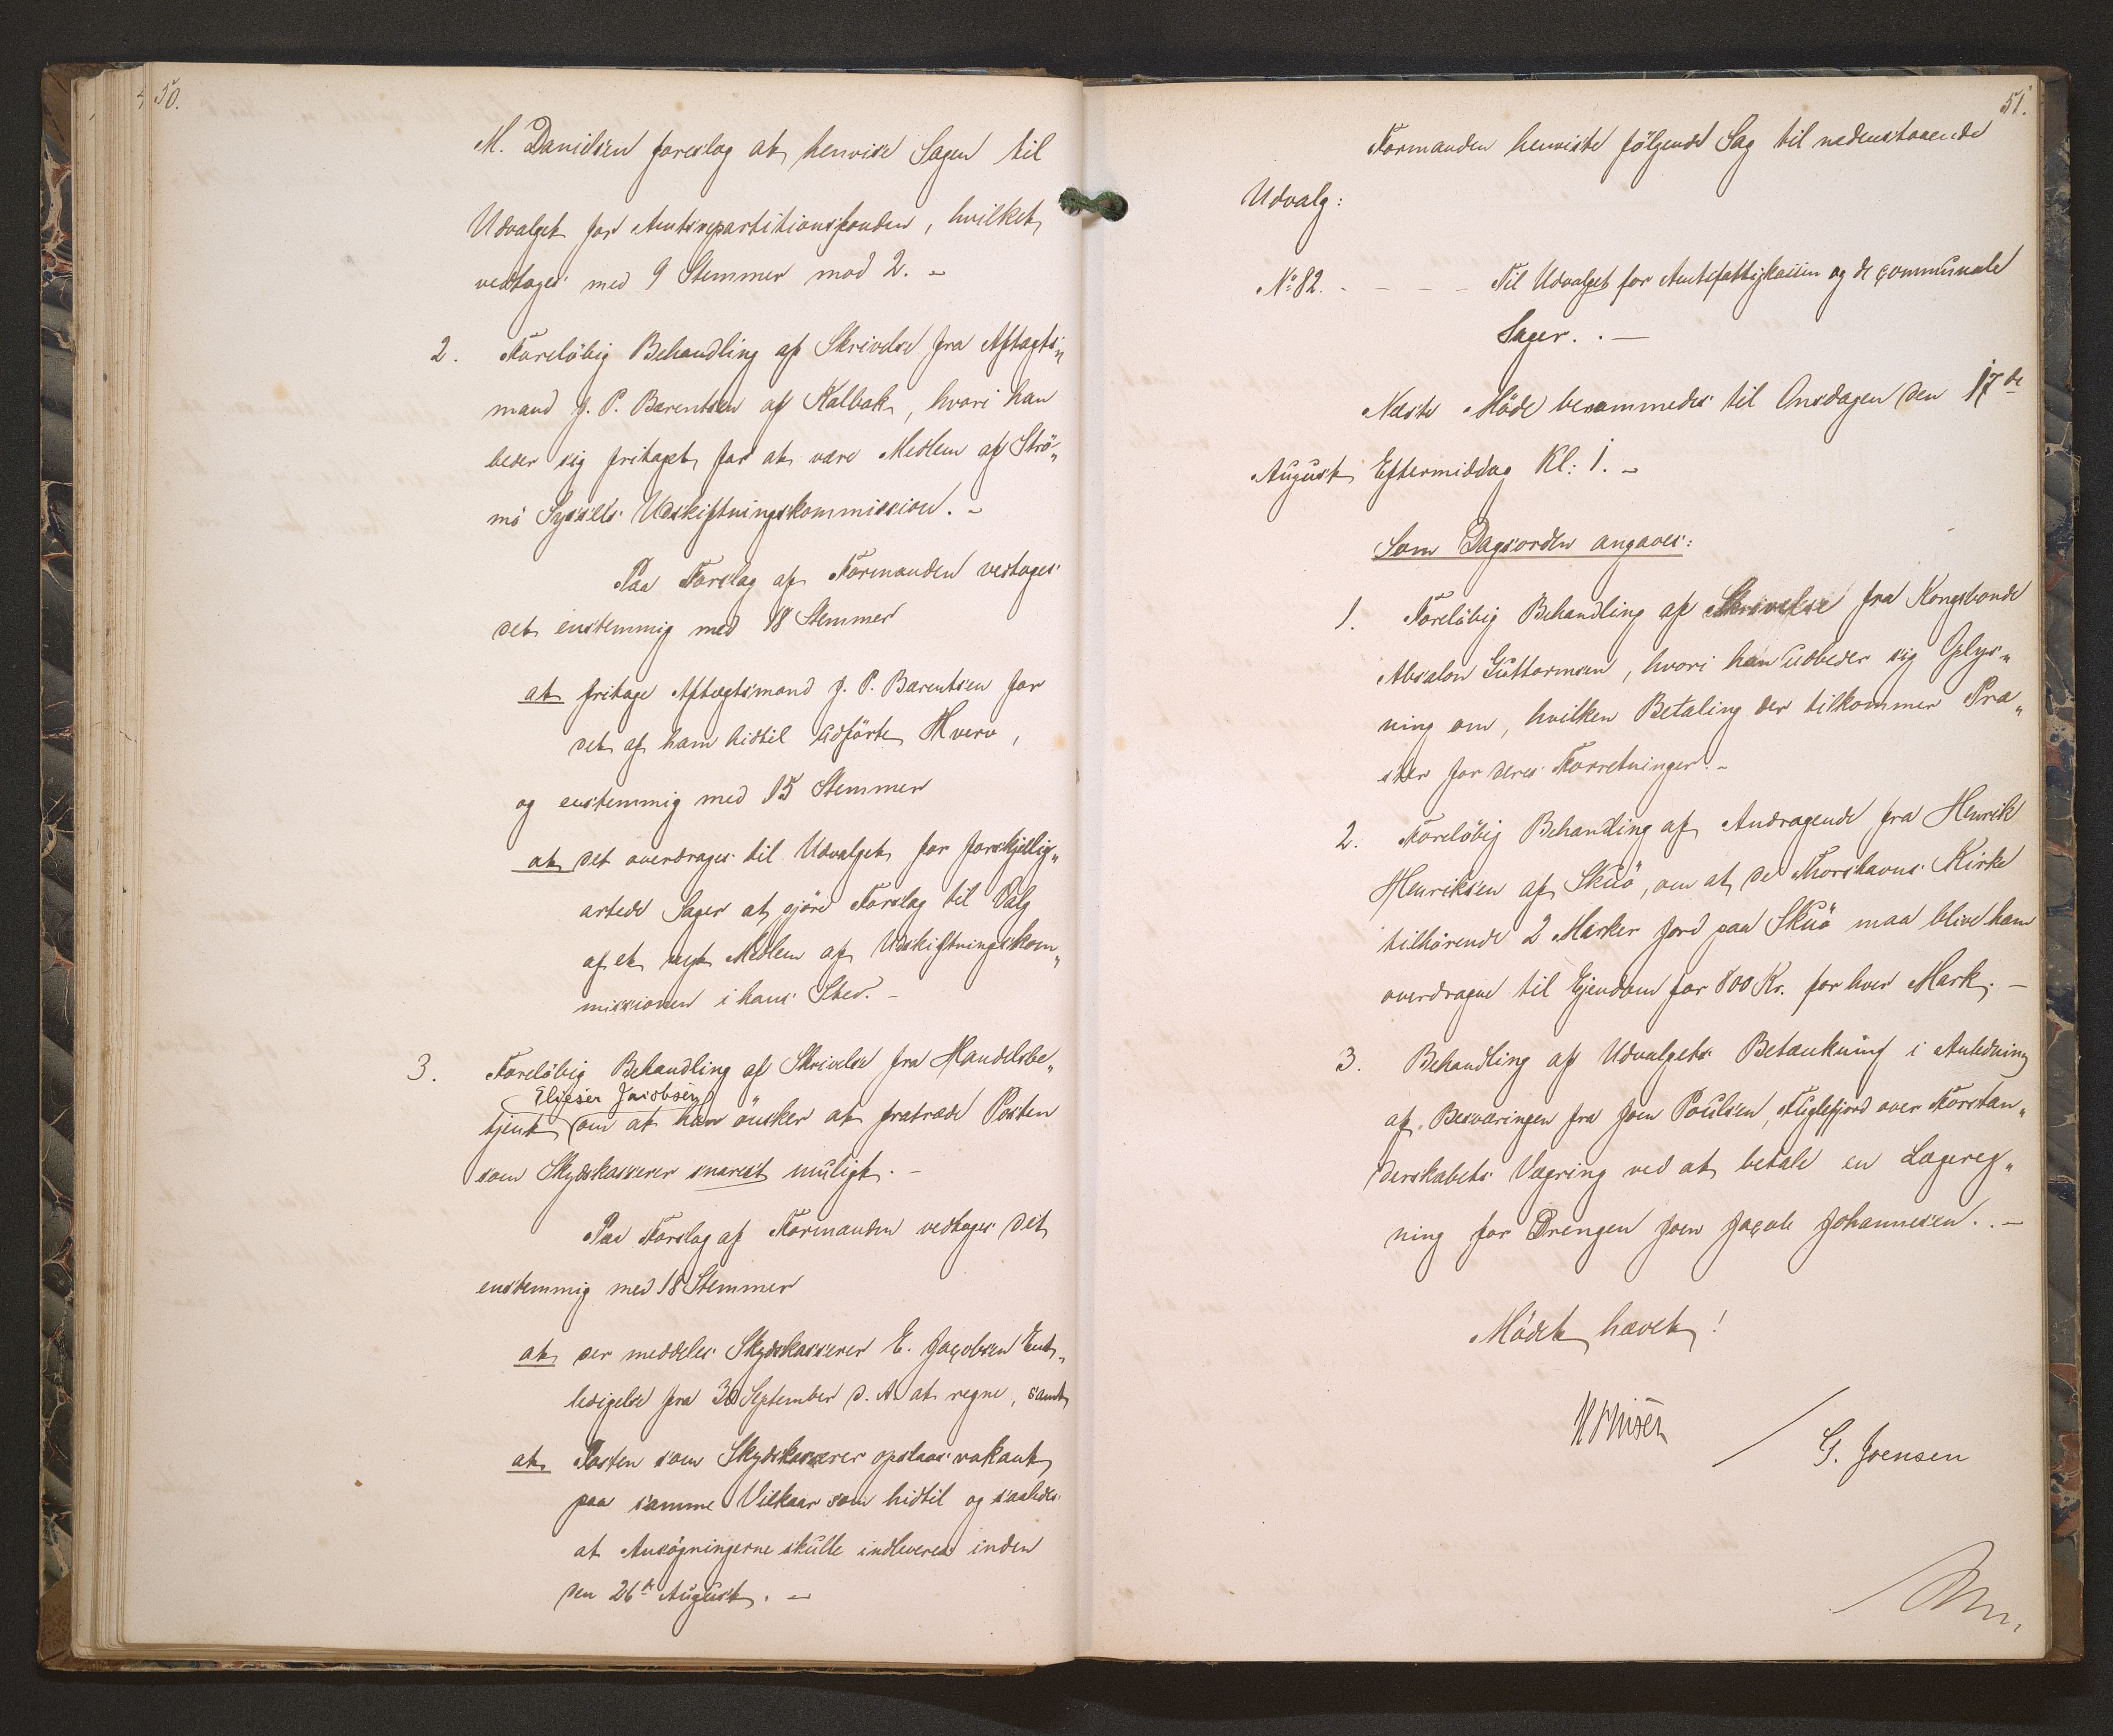 50.
M. Danielsen foreslog at henvise Sagen til
Udvalget for Amtsrepartitionsfonden, hvilket
vedtoges med 9 Stemmer mod 2. –
2. Foreløbig Behandling af Skrivelse fra Aftægts„
mand J. P. Barentsen af Kalbak, hvori han
beder sig fritaget for at være Medlem af Strö„
mö Syssels Udskiftningskommission. –
Paa Forslag af Formanden vedtoges
det enstemmig med 18 Stemmer
at fritage Aftægtsmand J. P. Barentsen for
det af ham hidtil udförte Hverv,
og enstemmig med 15 Stemmer
at det overdrages til Udvalget for forskjellig„
artede Sager at gjöre Forslag til Valg
af et nyt Medlem af Udskiftningskom„
missionen i hans Sted. –
3. Forelöbig Behandling af Skrivelse fra Handelsbe„
Elieser Jacobsen
tjent om at han önsker at fratræde Posten
som Skydskasserer snarest muligt. –
Paa Forslag af Formanden vedtoges det
enstemmig med 18 Stemmer
at der meddeles Skydskasserer E. Jacobsen Ent„
ledigelse fra 30 September d. A. at regne, samt
at Posten som Skydskasserer opslaas vakant
paa samme Vilkaar som hidtil og saaledes
at Ansögningerne skulle indleveres inden
den 26de August. –
51.
Formanden henviste fölgende Sag til nedenstaaende
Udvalg:
No 82. - - - - Til Udvalget for Amtsfattigkassen og de communale
Sager. . —
Næste Möde berammedes til Onsdagen den 17de
August Eftermiddag Kl: 1. –
Som Dagsorden angaves:
1. Forelöbig Behandling af Skrivelse fra Kongsbonde
Absalon Guttormsen, hvori han udbeder sig Oplys„
ning om, hvilken Betaling der tilkommer Præ„
ster for deres Forretninger. –
2. Forelöbig Behandling af Andragende fra Henrik
Henriksen af Skuö, om at de Thorshavns Kirke
tilhörende 2 Marker Jord paa Skuö maa blive ham
overdragne til Ejendom for 800 Kr. for hver Mark. —
3. Behandling af Udvalgets Betænkning i Anledning
af Besværingen fra Joen Poulsen, Fuglefjord over Forstan„
derskabets Vægring ved at betale en Lægereg„
ning for Drengen Joen Jacob Johannesen. . —
Mödet hævet!
G. Joensen